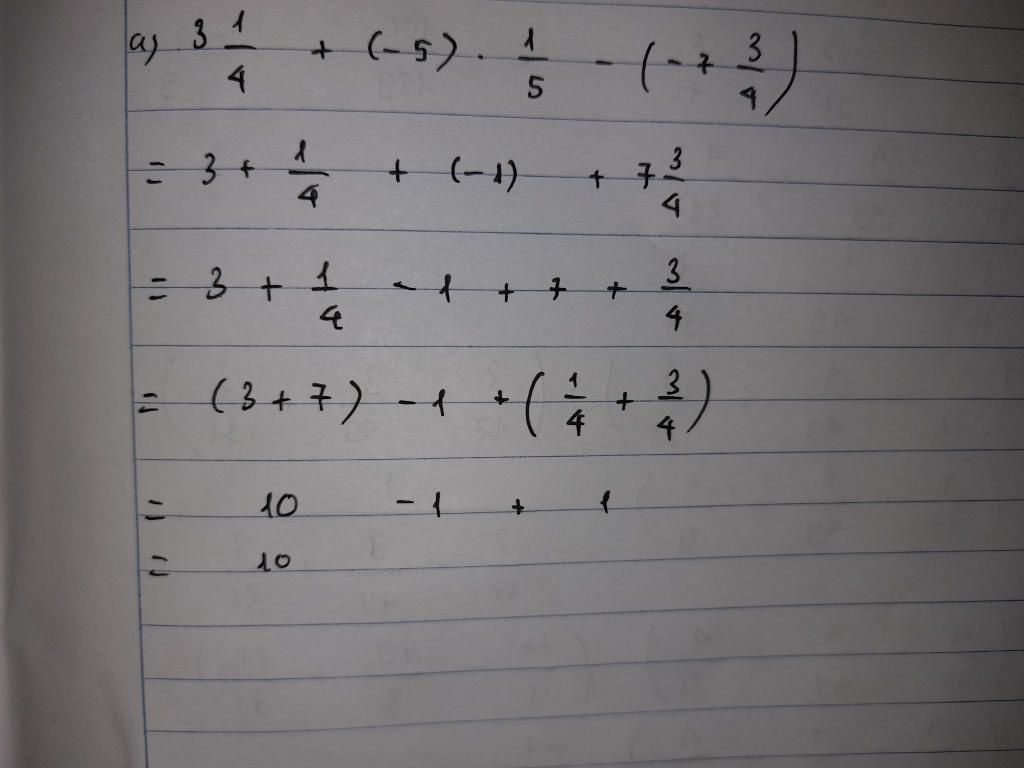 a) 3 1/4 + (-5) . 1/5 - (-7 3/4)
= 3 + 1/4 + (-1) + 7 3/4
= 3 + 1/4 - 1 + 7 + 3/4
= (3 + 7) - 1 + (1/4 + 3/4)
= 10 - 1 + 1
= 10